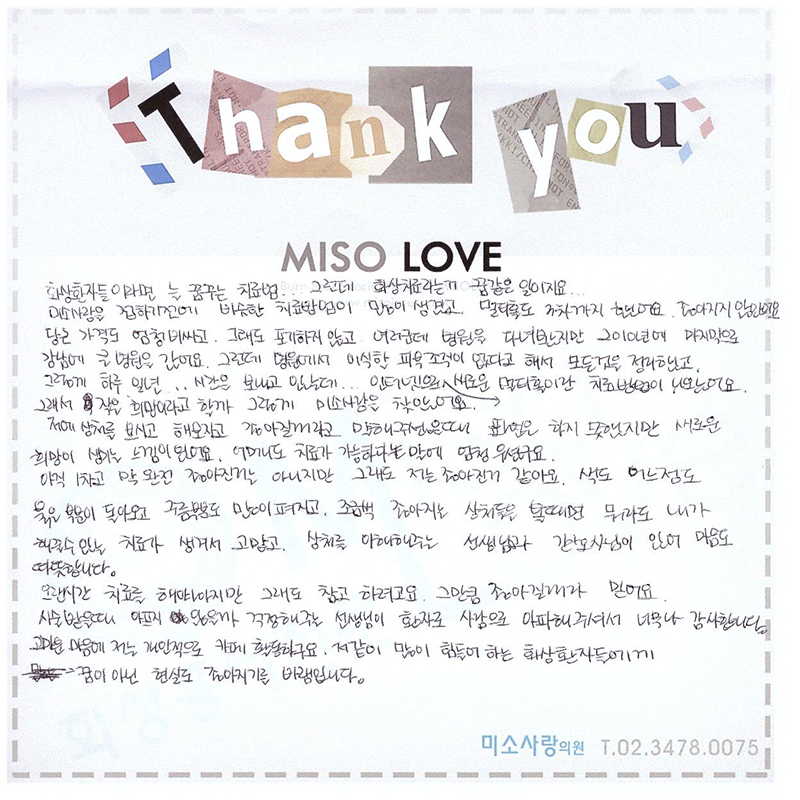 Thank you
MISO LOVE
화상환자들이라면 늘 꿈꾸는 치료법... 그런데 화상치료라는게 꿈같은 일이지요...
미소사랑은 전에 비슷한 치료방법이 많이 생겼고. 멀티홀도 차까지 했어요. 좋아지지 않았어요
당근 가격도 엄청비싸고. 그래도 포기하지 않고. 여러군데 병원을 다녀봤지만 2010년에 마지막으로
강남에 큰 병원을 갔어요. 그런데 병원에서 이식할 피부조직이 없다고 해서 모든것을 정리했고.
그렇게 하루 일년... 시간을 보내고 있는데... 인터넷으로 새로운 멀티홀이란 치료방법이 나왔어요.
그래서 작은 희망이라고 할까 그렇게 미소사랑을 찾았어요.
저의 상처를 보시고 해보자고 좋아질꺼라고 말해주셨을때 표현은 하지 못했지만 새로운
희망이 생기는 느낌이였어요. 어머니도 치료가 가능하다는 말에 엄청 우셨구요.
아직 1차고 막 완전 좋아진거는 아니지만 그래도 저는 좋아진거 같아요. 색도 어느정도
붉은 부분이 돌아오고 주름부분도 많이 펴지고. 조금씩 좋아지는 상처들을 볼때면 뭐라도 내가
해줄수 있는 치료가 생겨서 고맙고. 상처를 이해해주는 선생님과 간호사님이 있어 마음도
따뜻합니다.
오랜시간 치료를 해야하지만 그래도 참고 하려고요. 그만큼 좋아질꺼라 믿어요.
시술받을때 아프지 않을까 걱정해주는 선생님이 환자로 사람으로 아파해주셔서 너무나 감사합니다.
고마운 마음에 저는 개인적으로 카페 활동하구요. 저같이 많이 힘들어 하는 화상환자들에게
꿈이 아닌 현실로 좋아지기를 바램입니다.
미소사랑의원 T.02.3478.0075